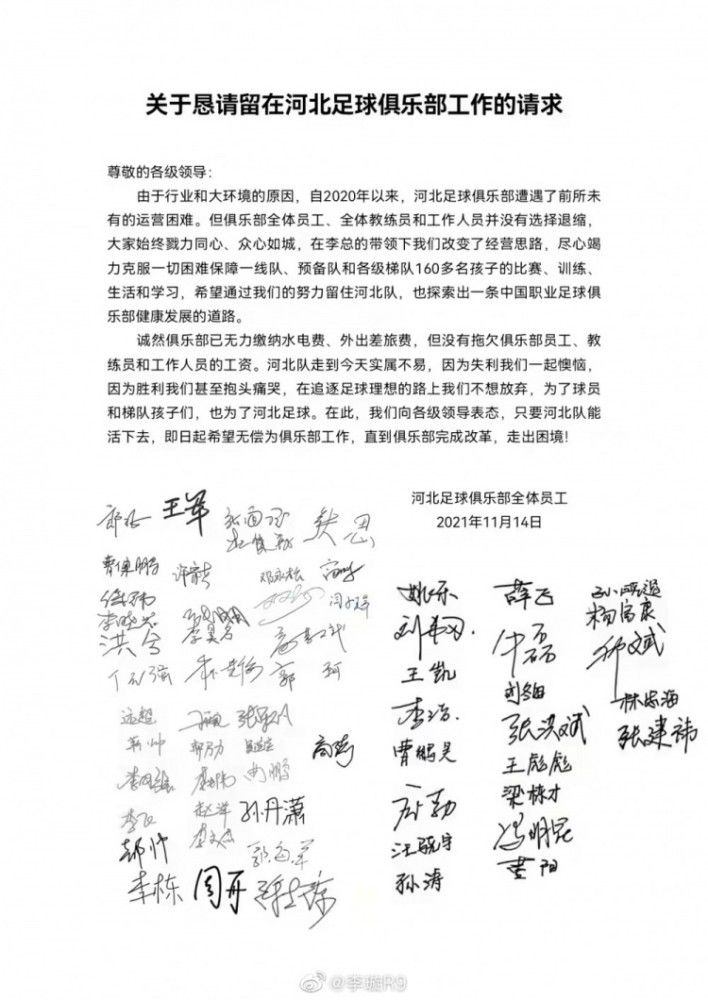 关于恳请留在河北足球俱乐部工作的请求
尊敬的各级领导：
由于行业和大环境的原因，自2020年以来，河北足球俱乐部遭遇了前所未
有的运营困难。但俱乐部全体员工、全体教练员和工作人员并没有选择退缩，
大家始终戮力同心、众心如城，在李总的带领下我们改变了经营思路，尽心竭
力克服一切困难保障一线队、预备队和各级梯队160多名孩子的比赛、训练、
生活和学习，希望通过我们的努力留住河北队，也探索出一条中国职业足球俱
乐部健康发展的道路。
诚然俱乐部已无力缴纳水电费、外出差旅费，但没有拖欠俱乐部员工、教
练员和工作人员的工资。河北队走到今天实属不易，因为失利我们一起懊恼，
因为胜利我们甚至抱头痛哭，在追逐足球理想的路上我们不想放弃，为了球员
和梯队孩子们，也为了河北足球。在此，我们向各级领导表态，只要河北队能
活下去，即日起希望无偿为俱乐部工作，直到俱乐部完成改革，走出困境！
河北足球俱乐部全体员工
2021年11月14日
王军
洪兮
郭珂
孙丹潇
李栋 周开
姚乐
王凯
李浩
曹鹏昊
汪晓宇
孙涛
薛飞
牛磊
张洪斌
王彪彪
梁栋才
冯明昆
黄阳
杨富康
林志海
张建祎
@李璇R9